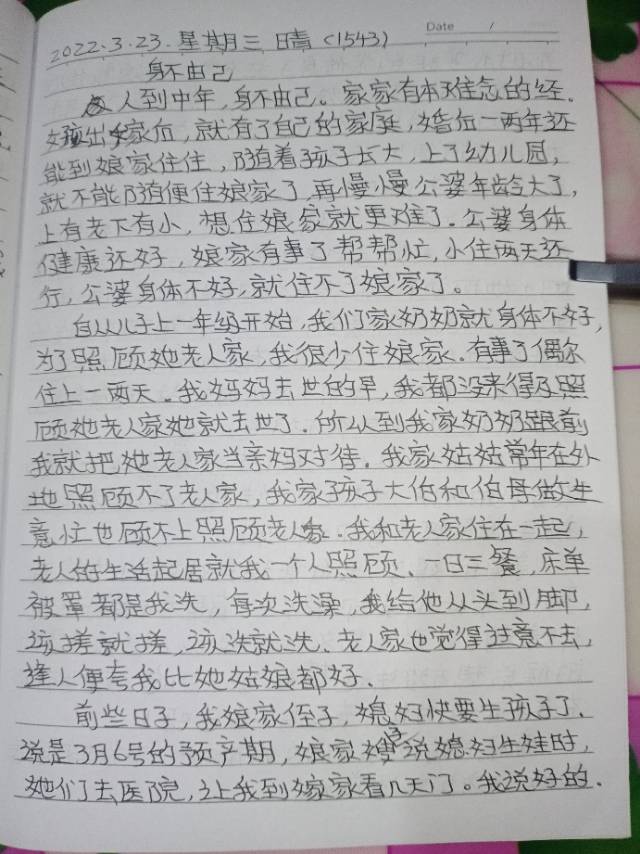 Date /
2022.3.23.星期三 晴(1543)
身不由己
人到中年,身不由己。家家有本难念的经。
女孩出嫁后,就有了自己的家庭,婚后一两年还
能到娘家住住,随着孩子长大,上了幼儿园,
就不能随便住娘家了,再慢慢公婆年龄大了,
上有老下有小,想住娘家就更难了。公婆身体
健康还好,娘家有事了帮帮忙,小住两天还
行,公婆身体不好,就住不了娘家了。
自从儿子上一年级开始,我们家奶奶就身体不好,
为了照顾她老人家,我很少住娘家。有事了偶尔
住上一两天。我妈妈去世的早,我都没来得及照
顾她老人家她就去世了。所以到我家奶奶跟前
我就把她老人家当亲妈对待。我家姑姑常年在外
地照顾不了老人家,我家孩子大伯和伯母做生
意忙也顾不上照顾老人家。我和老人家住在一起,
老人的生活起居就我一个人照顾、一日三餐,床单
被罩都是我洗,每次洗澡,我给他从头到脚,
该搓就搓,该洗就洗、老人家也觉得过意不去,
逢人便夸我比她姑娘都好、
前些日子,我娘家侄子,媳妇快要生孩子了、
说是3月6号的预产期,娘家嫂子说媳妇生娃时,
她们去医院,让我到嫁家看几天门。我说好的.